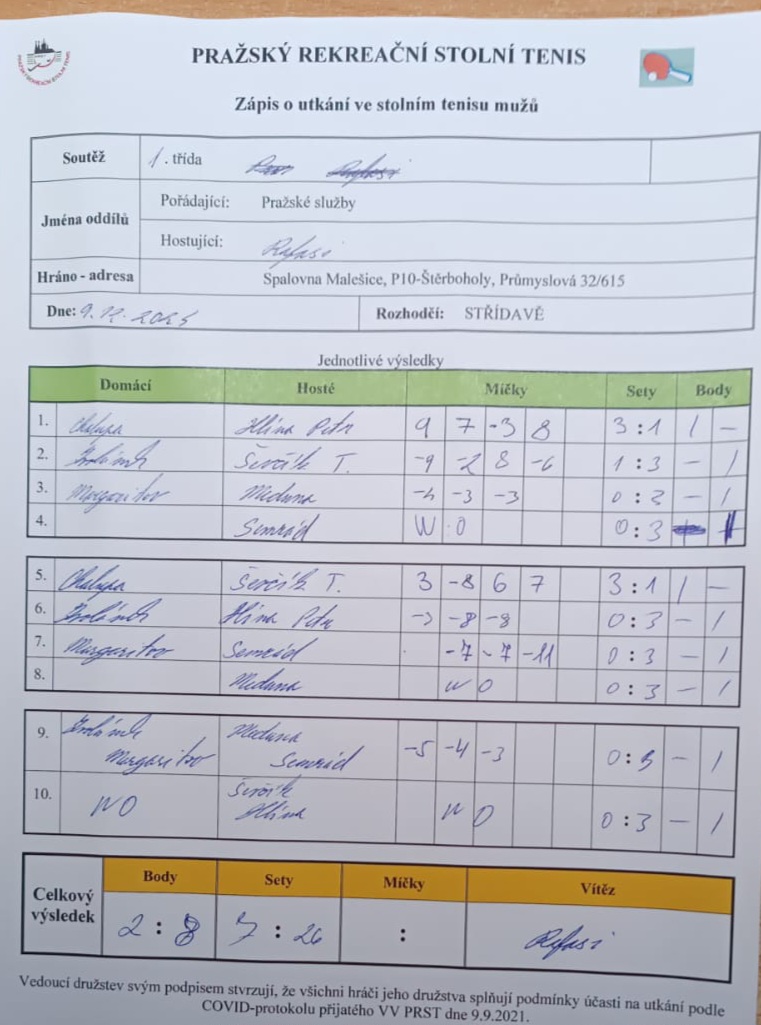 PRAŽSKÝ REKREAČNÍ STOLNÍ TENIS
Zápis o utkání ve stolním tenisu mužů
Soutěž 1. třída
Jména oddílů
Pořádající: Pražské služby
Hostující: Rafasi
Hráno - adresa Spalovna Malešice, P10-Štěrboholy, Průmyslová 32/615
Dne: 9.12. Rozhodčí: STŘÍDAVĚ
Jednotlivé výsledky
Domácí Hosté Míčky Sety Body
1. Chalupa Hlína Petr 9 7 -3 8 3 : 1 1 –
2. Ševčík T. -9 -2 8 -6 1 : 3 – 1
3. Margaritov Meduna -4 -3 -3 0 : 3 – 1
4. Semrád W O 0 : 3 1
5. Chalupa Ševčík T. 3 -8 6 7 3 : 1 1 –
6. Hlína Petr -8 -8 0 : 3 – 1
7. Margaritov Semrád -7 -7 -11 0 : 3 – 1
8. Meduna WO 0 : 3 – 1
9. Meduna
Margaritov Semrád -5 -4 -3 0 : 3 – 1
10. WO Ševčík
Hlína WO 0 : 3 – 1
Celkový výsledek
Body Sety Míčky Vítěz
2 : 8 7 : 26 : Rafasi
Vedoucí družstev svým podpisem stvrzují, že všichni hráči jeho družstva splňují podmínky účasti na utkání podle
COVID-protokolu přijatého VV PRST dne 9.9.2021.